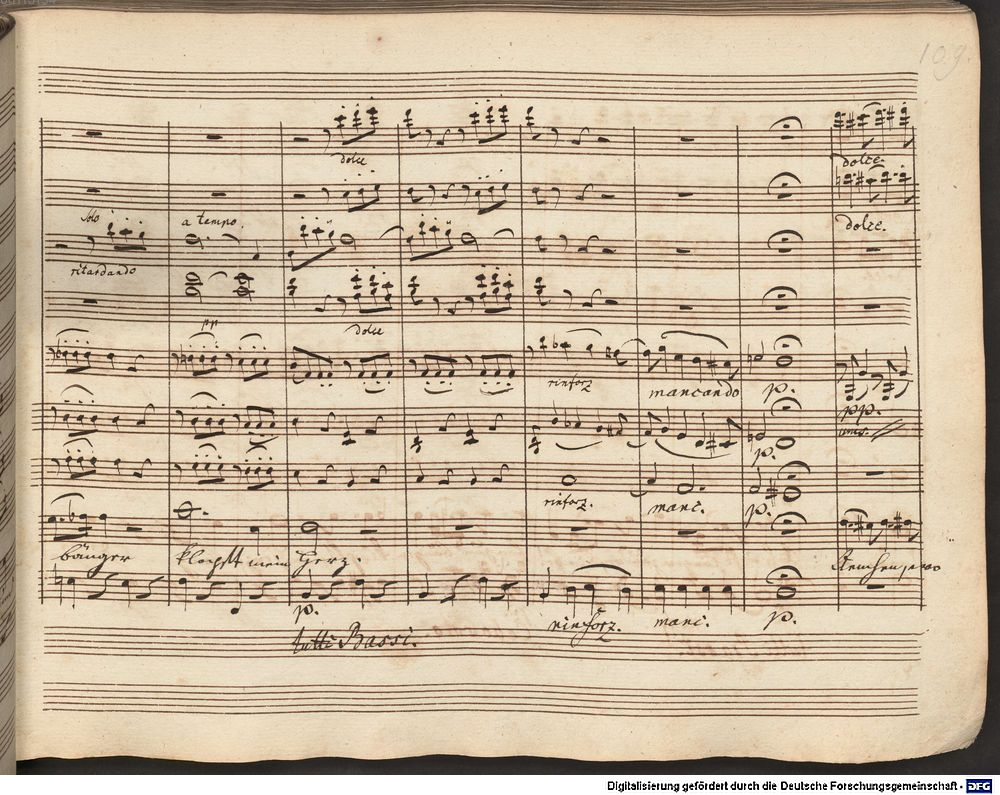 109.
dolce
dolce.
Solo
a tempo.
dolce.
ritardando
pp
dolce
rinforz
mancando
p.
pp.
unis.
p.
rinforz.
manc.
p.
bänger klopft mein Herz.
p.
rinforz.
manc.
p.
tutti Bassi.
Digitalisierung gefördert durch die Deutsche Forschungsgemeinschaft - DFG